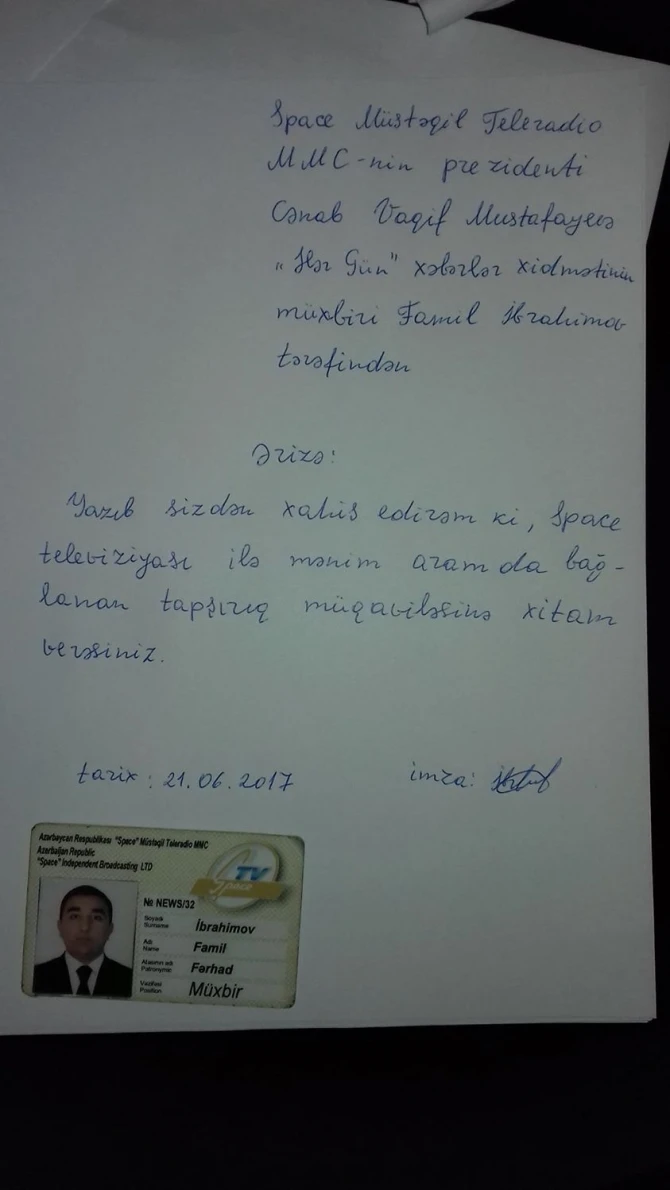 Space Müstəqil Teleradio
MMC-nin prezidenti
Cənab Vaqif Mustafayevə
"Hər Gün" xəbərlər xidmətinin
müxbiri Famil İbrahimov
tərəfindən
Ərizə:
Yazıb sizdən xahiş edirəm ki, Space
televiziyası ilə mənim aramda bağ-
lanan tapşırıq müqaviləsinə xitam
verəsiniz.
tarix: 21.06.2017 imza:
Azərbaycan Respublikası "Space" Müstəqil Teleradio MMC
Azerbaijan Republic
"Space" Independent Broadcasting LTD
TV
Space
№ NEWS/32
Soyadı
Surname İbrahimov
Adı
Name Famil
Atasının adı
Patronymic Fərhad
Vəzifəsi
Position Müxbir